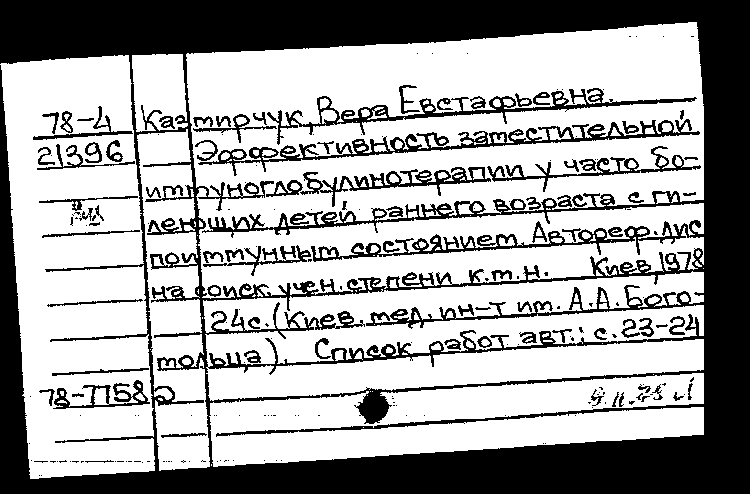 78-4 Казмирчук, Вера Евстафьевна.
21396 Эффективность заместительной
иммуноглобулинотерапии у часто бо-
леющих детей раннего возраста с ги-
поиммунным состоянием. Автореф. дис
на соиск. учен. степени к.м.н. Киев, 1978
24с. (Киев. мед. ин-т им. А.А. Бого-
мольца). Список работ авт.: с. 23-24
78-7758а